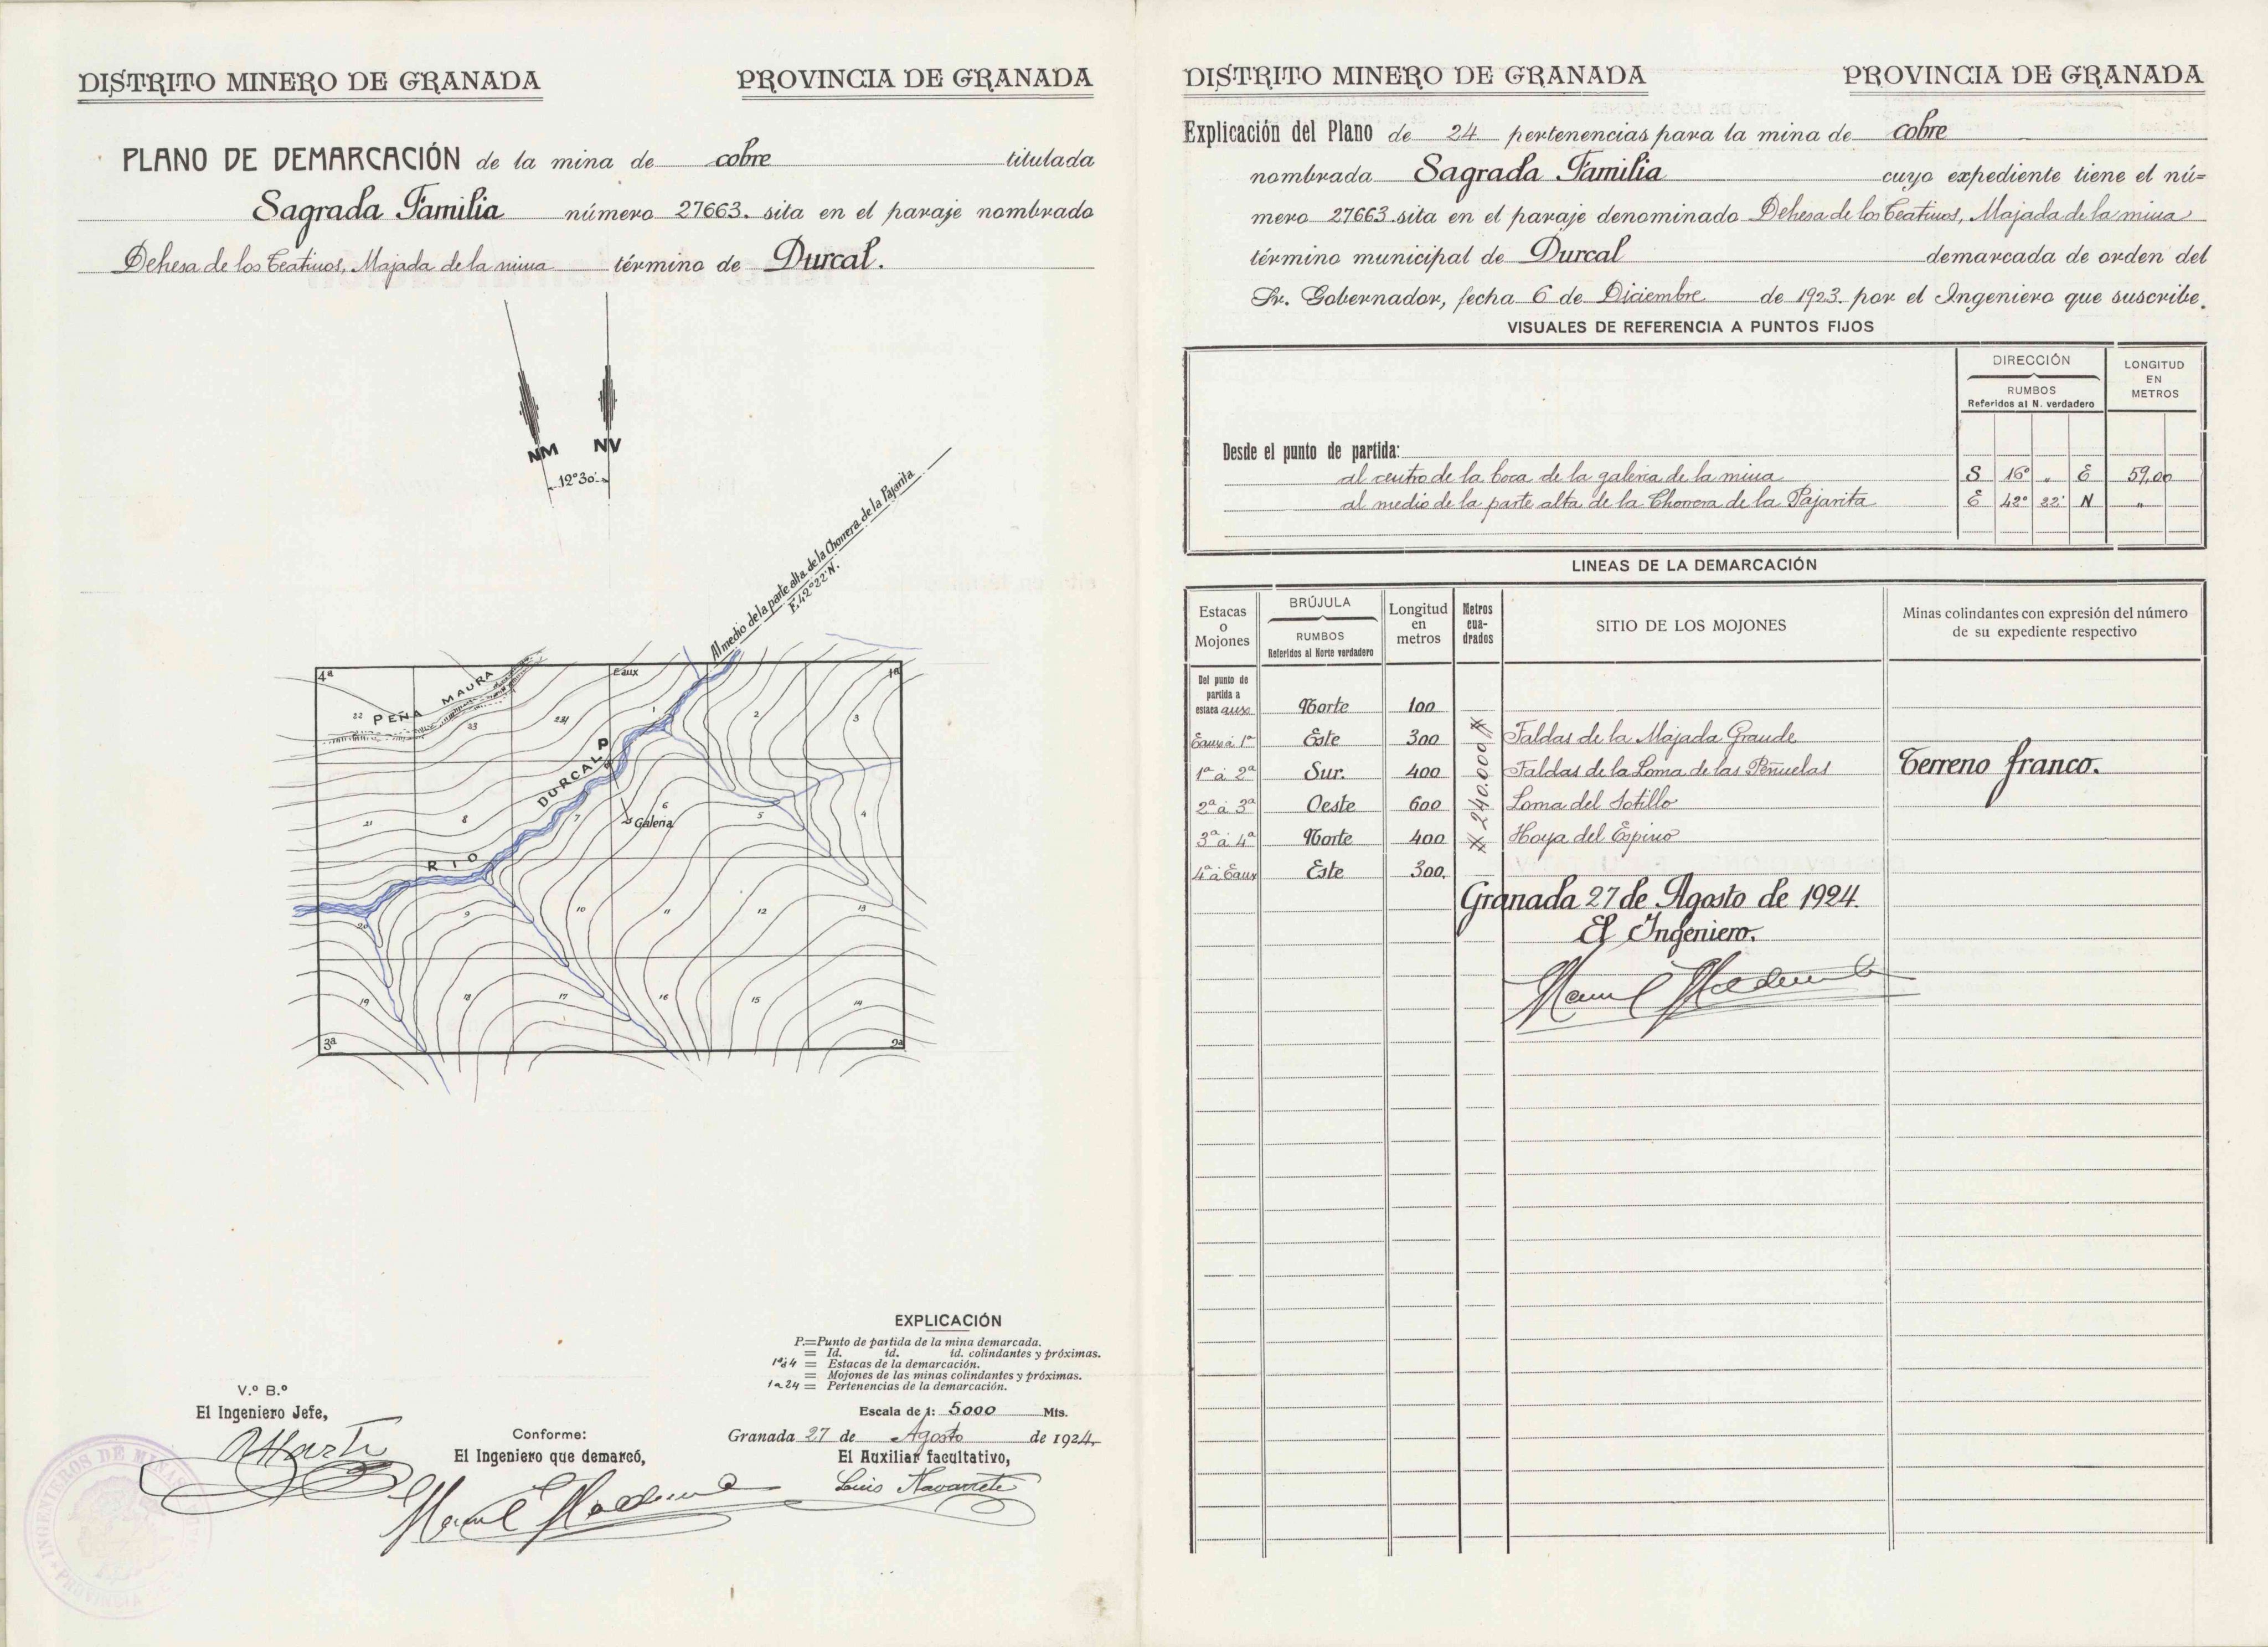 DISTRITO MINERO DE GRANADA PROVINCIA DE GRANADA
PLANO DE DEMARCACIÓN de la mina de cobre titulada
Sagrada Familia número 27663. sita en el paraje nombrado
Dehesa de los Teatinos, Majada de la mina término de Durcal.
NM NV
12°30'
Al medio de la parte alta de la Chorrera de la Pajarita
E.42°22'N.
4ª Eaux 1ª
PEÑA MAURA
22 23 24 1 2 3
P
RIO DURCAL
21 8 7 6 5 4
Galeria
20 9 10 11 12 13
19 18 17 16 15 14
3ª 2ª
EXPLICACIÓN
P.=Punto de partida de la mina demarcada.
= Id. id. id. colindantes y próximas.
1ª á 4 = Estacas de la demarcación.
= Mojones de las minas colindantes y próximas.
1 a 24 = Pertenencias de la demarcación.
Escala de 1: 5000 Mts.
Granada 27 de Agosto de 1924.
El Auxiliar facultativo,
Luis Navarrete
V.º B.º
El Ingeniero Jefe,
Conforme:
El Ingeniero que demarcó,
INGENIEROS DE MINAS
PROVINCIA
DISTRITO MINERO DE GRANADA PROVINCIA DE GRANADA
Explicación del Plano de 24 pertenencias para la mina de cobre
nombrada Sagrada Familia cuyo expediente tiene el nú=
mero 27663 sita en el paraje denominado Dehesa de los Teatinos, Majada de la mina
término municipal de Durcal demarcada de orden del
Sr. Gobernador, fecha 6 de Diciembre de 1923. por el Ingeniero que suscribe.
VISUALES DE REFERENCIA A PUNTOS FIJOS
DIRECCIÓN LONGITUD EN METROS
RUMBOS
Referidos al N. verdadero
Desde el punto de partida:
al centro de la boca de la galeria de la mina S 16° " E 59,00
al medio de la parte alta de la Chorrera de la Pajarita E 42° 22' N "
LINEAS DE LA DEMARCACIÓN
Estacas o Mojones BRÚJULA RUMBOS Referidos al Norte verdadero Longitud en metros Metros cua-drados SITIO DE LOS MOJONES Minas colindantes con expresión del número de su expediente respectivo
Del punto de partida a estaca aux. Norte 100
Eaux á 1ª Este 300 Faldas de la Majada Grande
1ª á 2ª Sur. 400 Faldas de la Loma de las Peñuelas Terreno franco.
2ª á 3ª Oeste 600 Loma del Sotillo
3ª á 4ª Norte 400 Hoya del Espino
4ª á Eaux Este 300.
# 240.000 #
Granada 27 de Agosto de 1924.
El Ingeniero.